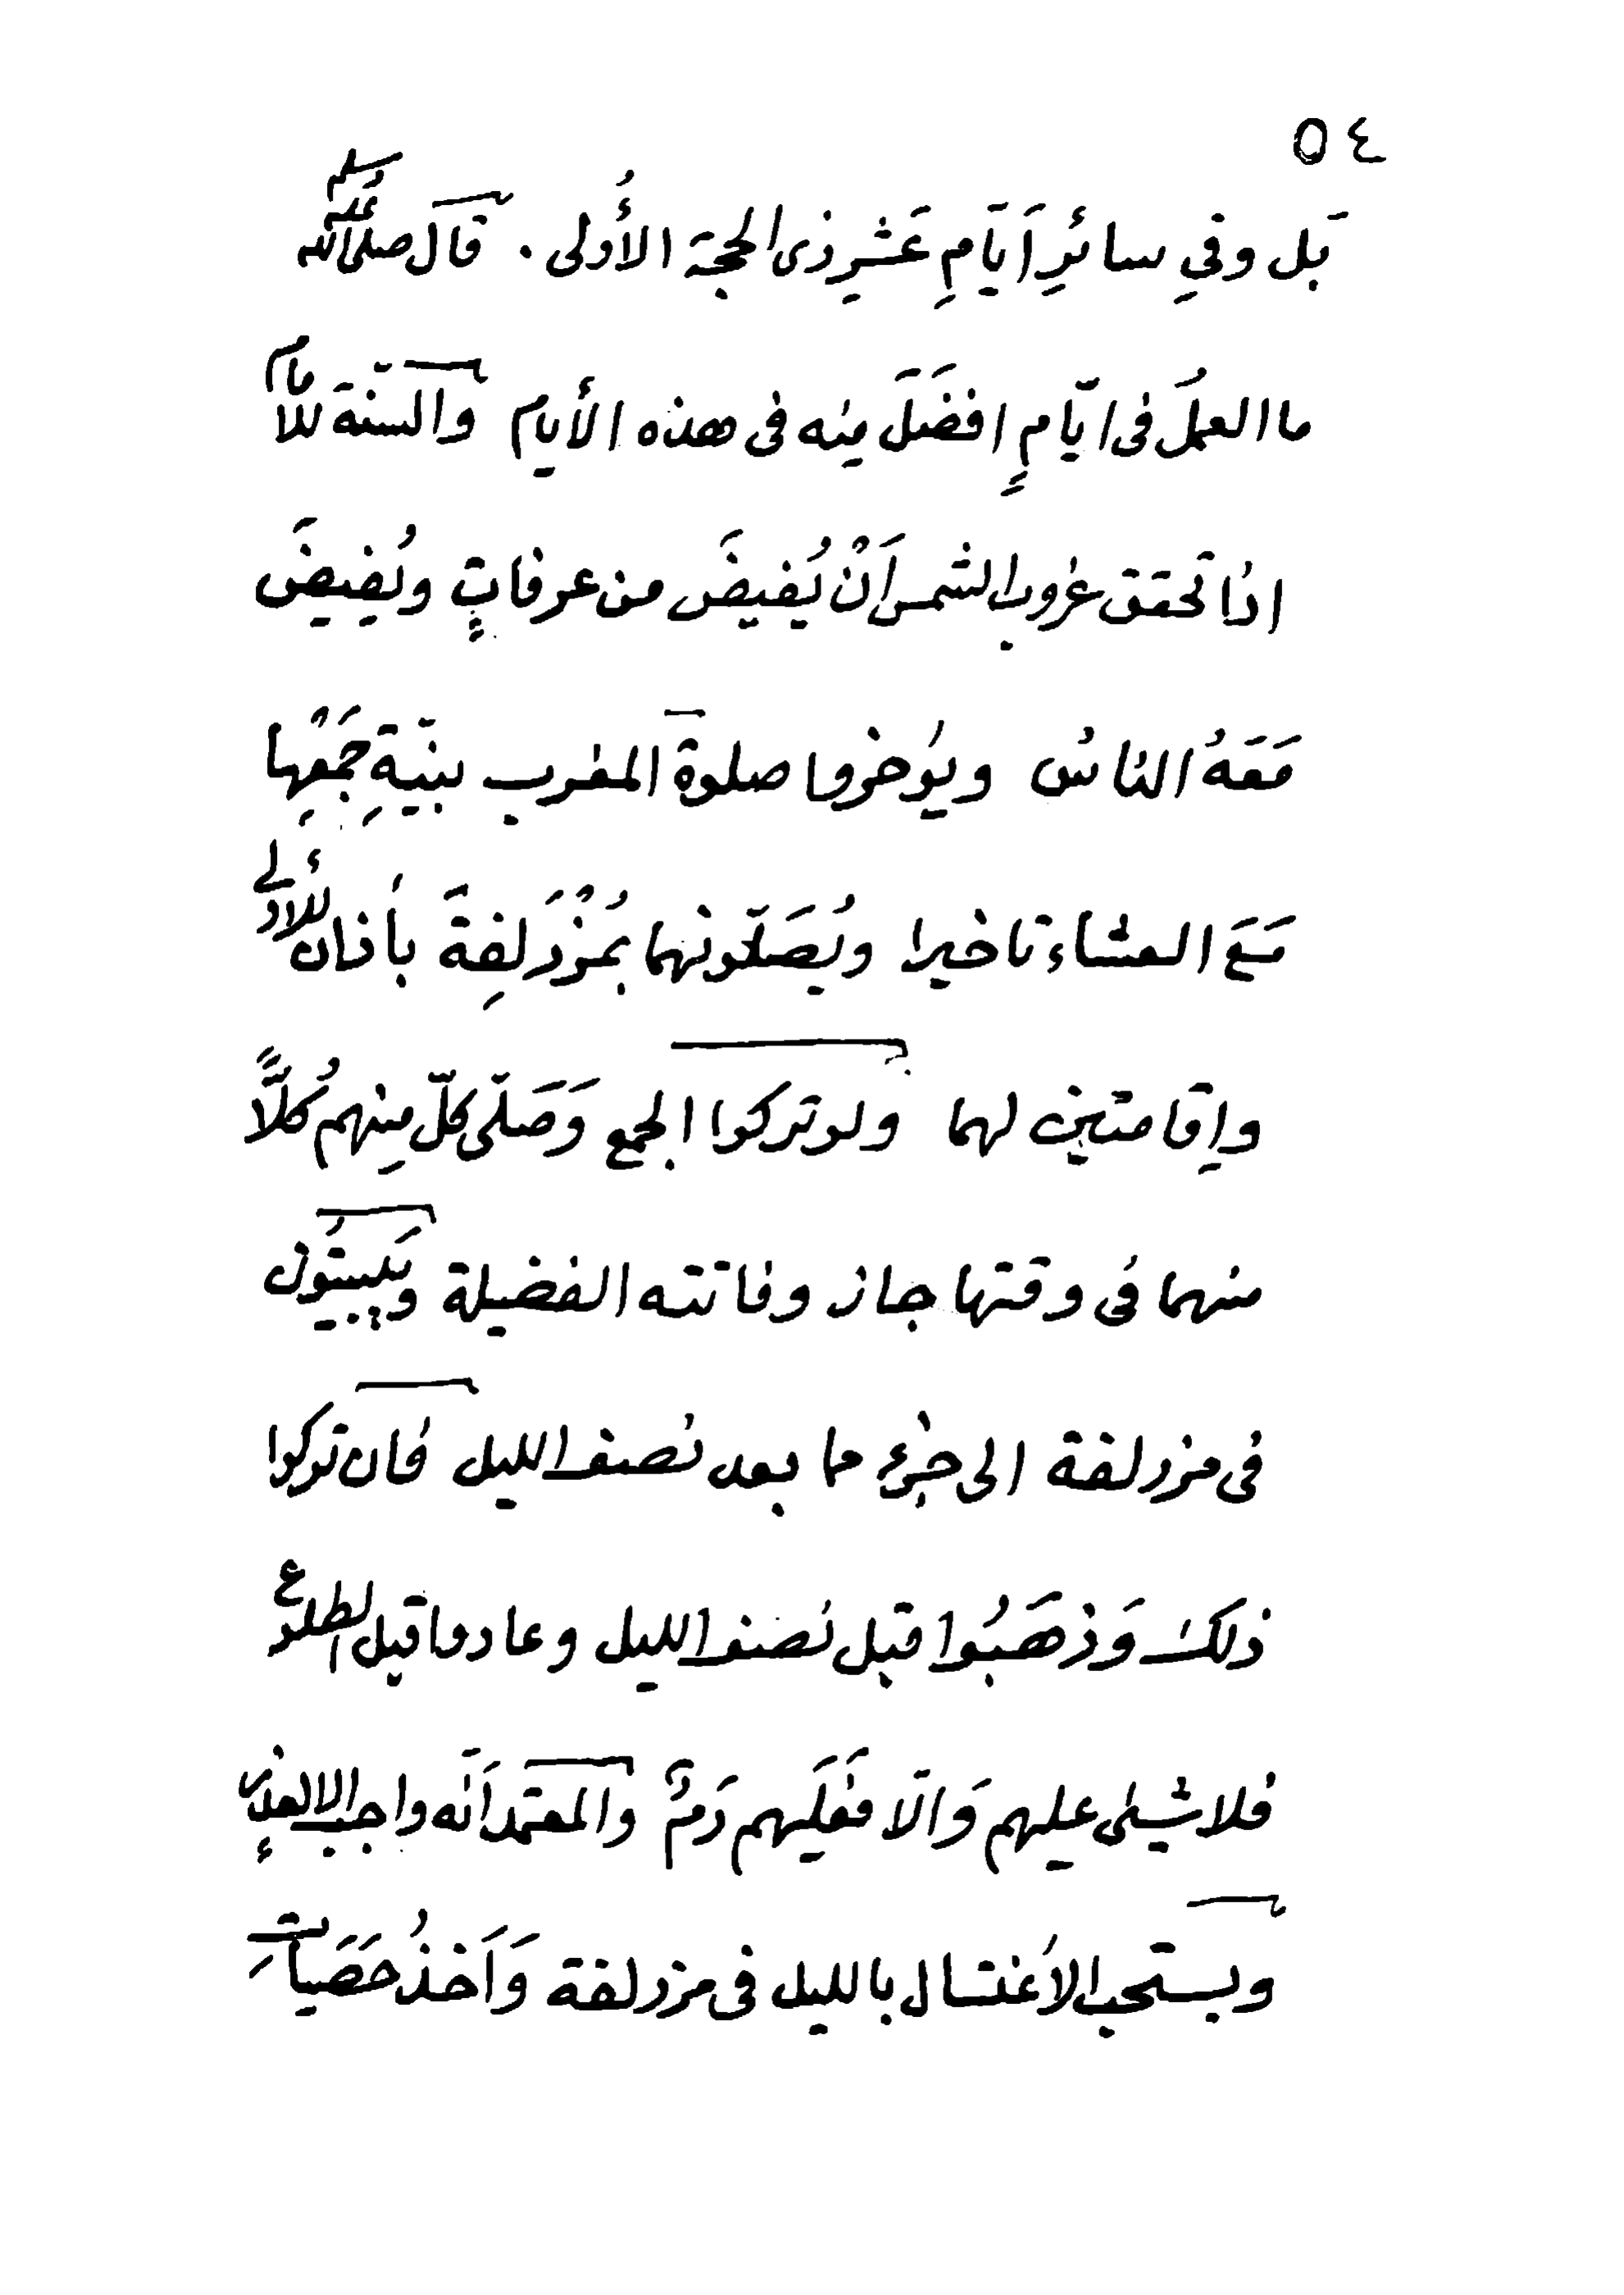 ٥٤
بَل وفي سائرِ اَيَّامِ عَشرِ ذى الحجة الأُولى . قال صلى الله عليه وسلم
ما العملُ فى ايّامٍ افضَلَ مِنه فى هذه الأيام والسنّة للامام
اذا تحقق غروب الشمس اَنْ يُفيضَ من عرفاتٍ ويُفِيضَ
مَعَهُ الناسُ ويؤخروا صلوة المغرب بنيّةِ جَمْعِها
مَعَ العشاء تاخيرا ويُصَلّونهما بمُزْدَلِفةَ بأذان للأولى
وإقامتين لهما ولو تركوا الجمع وَصَلّى كلّ مِنهم كُلاًّ
منهما فى وقتها جاز وفاتته الفضيلة وَيَبيتُون
فى مزدلفة الى جزء مما بعد نصف الليل فان تركوا
ذلك وَذهَبُوا قبل نصف الليل وعادوا قبل الطلوع
فلا شيئ عليهم وَالّا فَعَلَيهم دَمٌ والمعتمد اَنّه واجب الا لعذرٍ
ويستحب الاغتسال بالليل فى مزدلفة وَاَخذُ حَصَيَاتِ